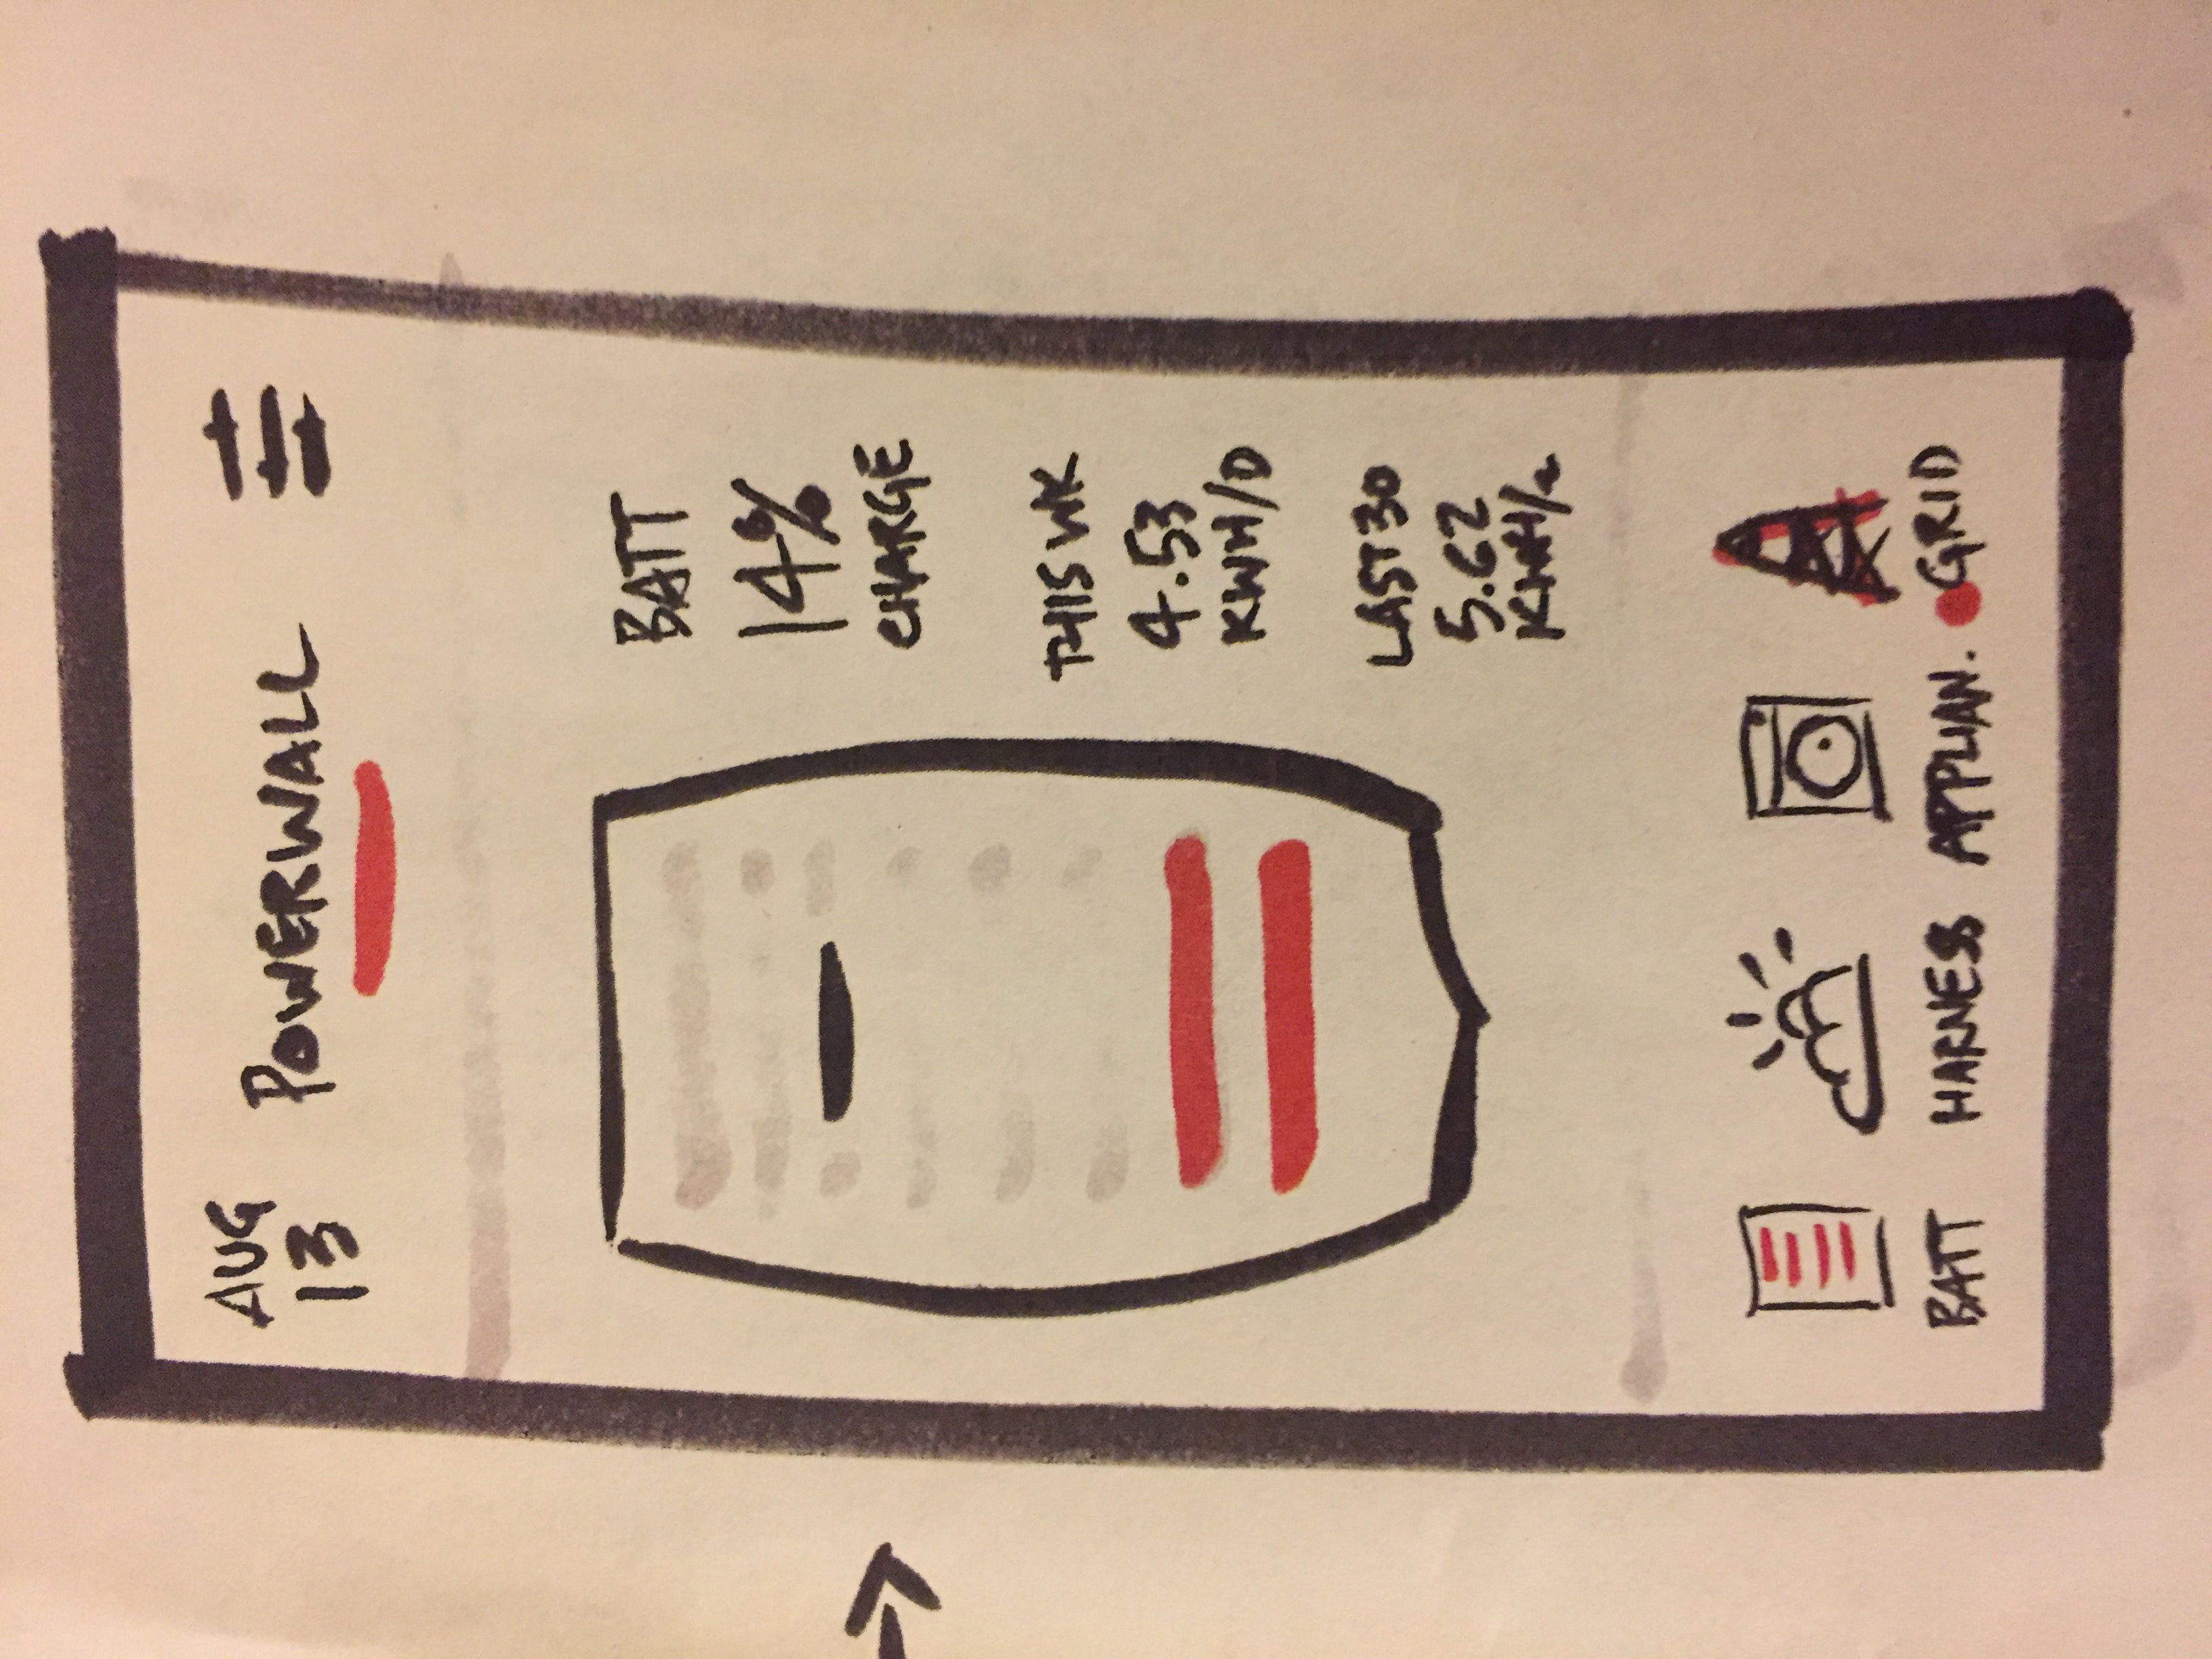 AUG
13
POWERWALL
BATT
14%
CHARGE
THIS WK
4.53
KWH/D
LAST 30
5.62
BATT
HARNESS
APPLIAN.
GRID